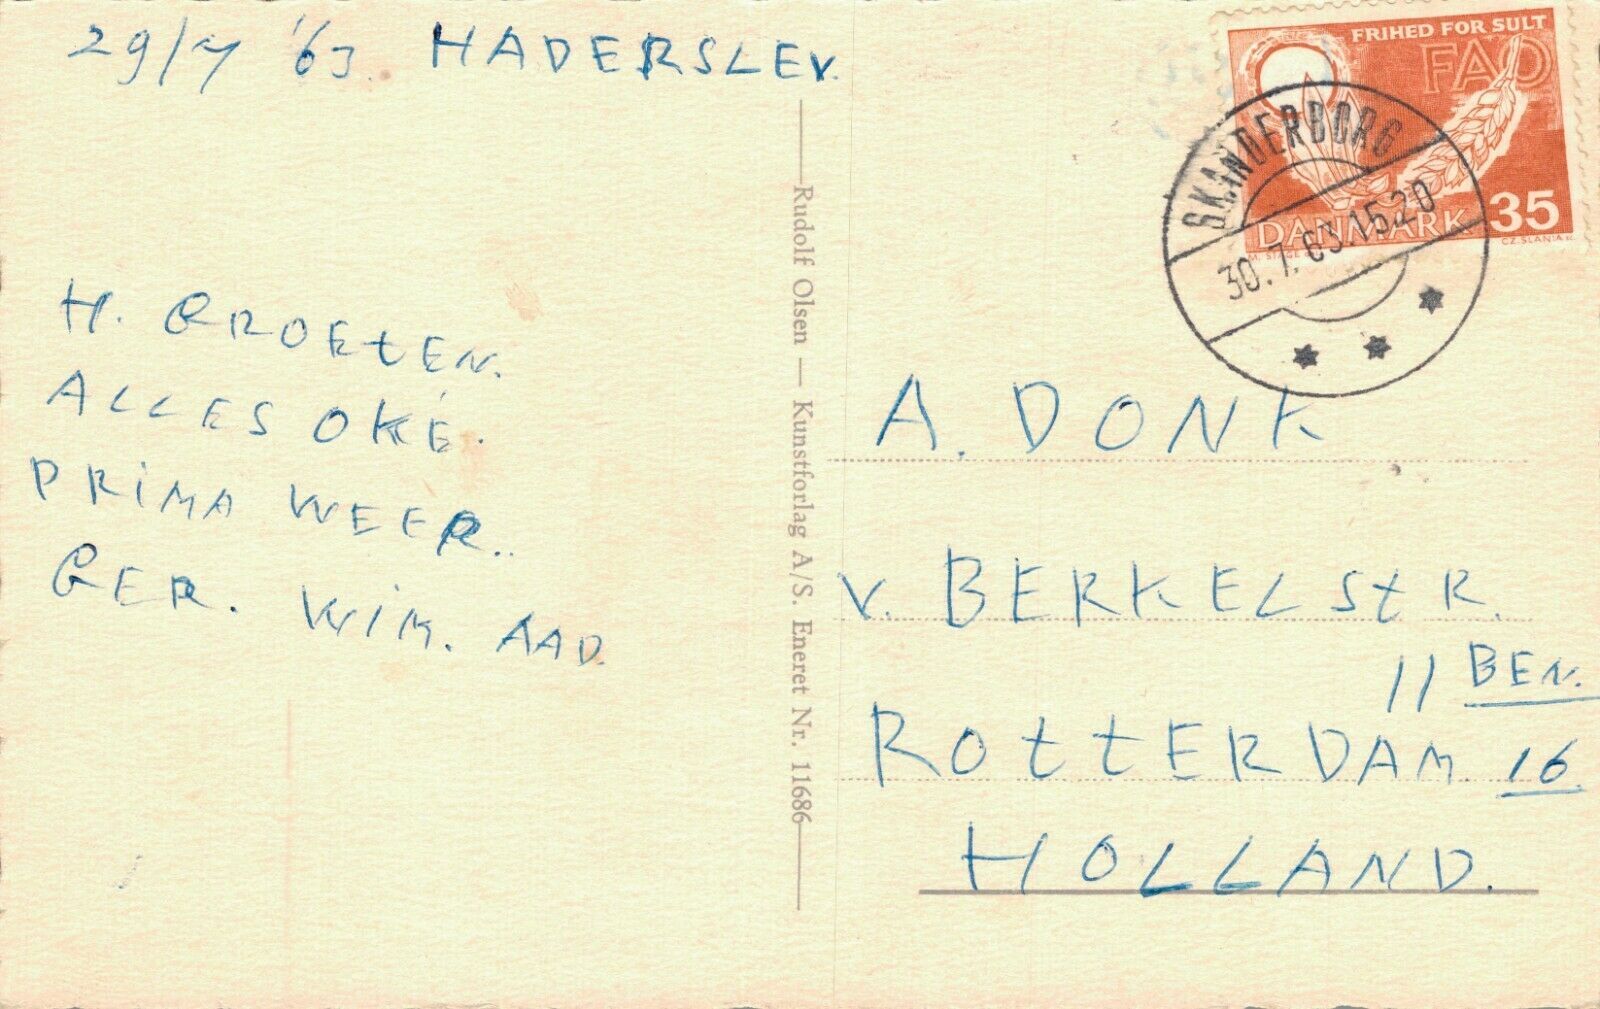 29/7 '63. HADERSLEV.
H. GROETEN.
ALLES OKÉ.
PRIMA WEER..
GER. WIM. AAD.
Rudolf Olsen — Kunstforlag A/S. Eneret Nr. 11686
FRIHED FOR SULT
FAO
DANMARK 35
CZ. SLANIA sc.
SKANDERBORG
30.7.63.15.20
A. DONK
v. BERKELSTR.
11 BEN.
ROTTERDAM. 16.
HOLLAND.